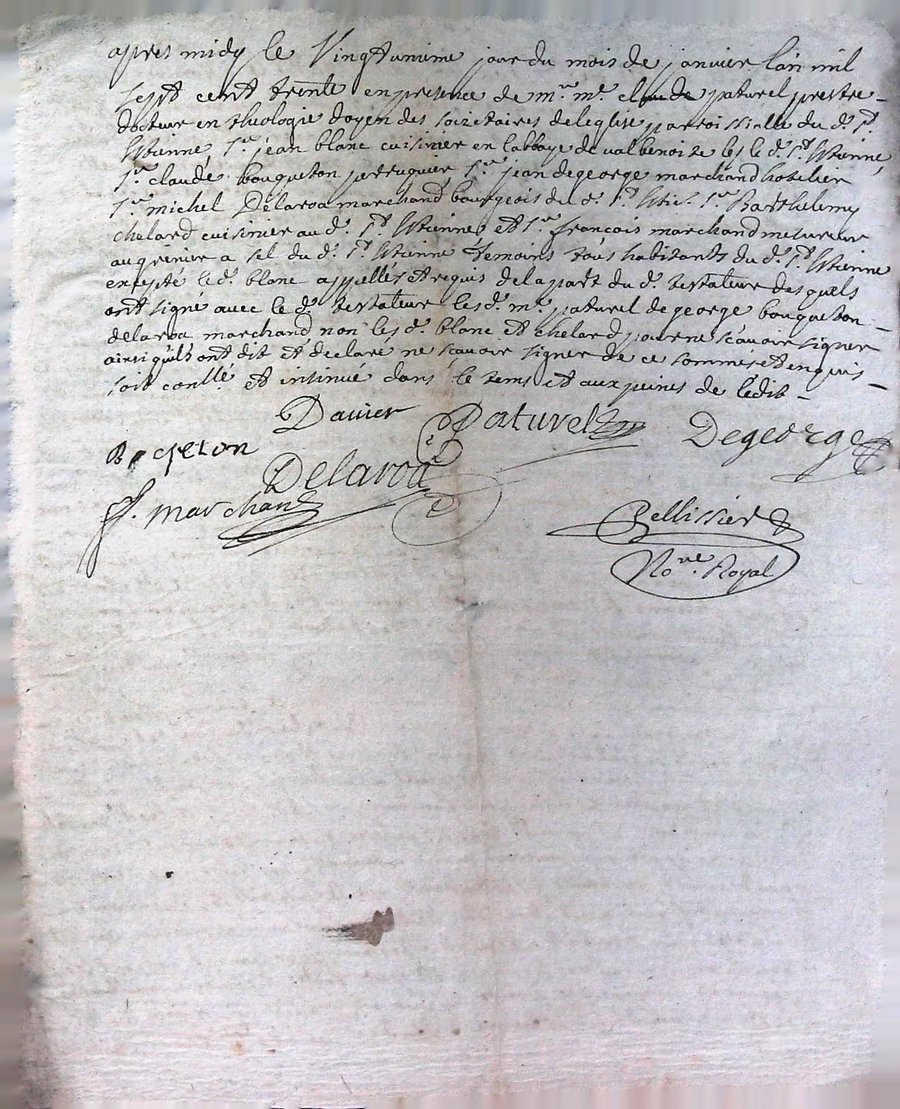 apres midy le Vingtunieme jour du mois de janvier lan mil
sept cent trente en presence de mre me claude paturel prestre
docteur en theologie doyen des societaires de leglise parroissialle du d. st
Estienne sr jean blanc cuisinier en labbaye de valbenoite les le d. st Estienne
sr claude bouqueton perruquier sr jean degeorge marchand hotelier
sr michel Delaroa marchand bourgeois du d. st Esti. sr Barthelemy
chelard cuisinier au d. st Estienne et sr francois marchand mesureur
au grenier a sel du d. st Estienne temoins tous habitants du d. st Estienne
excepté le d. blanc appellez et requis de la part du d. testateur desquels
ont signé avec le d. testateur les d. me paturel degeorge bouqueton
delaroa marchand non les d. blanc et chelard pour ne scavoir signer
ainsi quils ont dit et declaré ne scavoir signer de ce sommés et enquis
soit conllé et insinué dans le tems et aux peines de ledit
Davier Paturel Degeorge
Delaroa
f. marchand Pellissier
No.re Royal